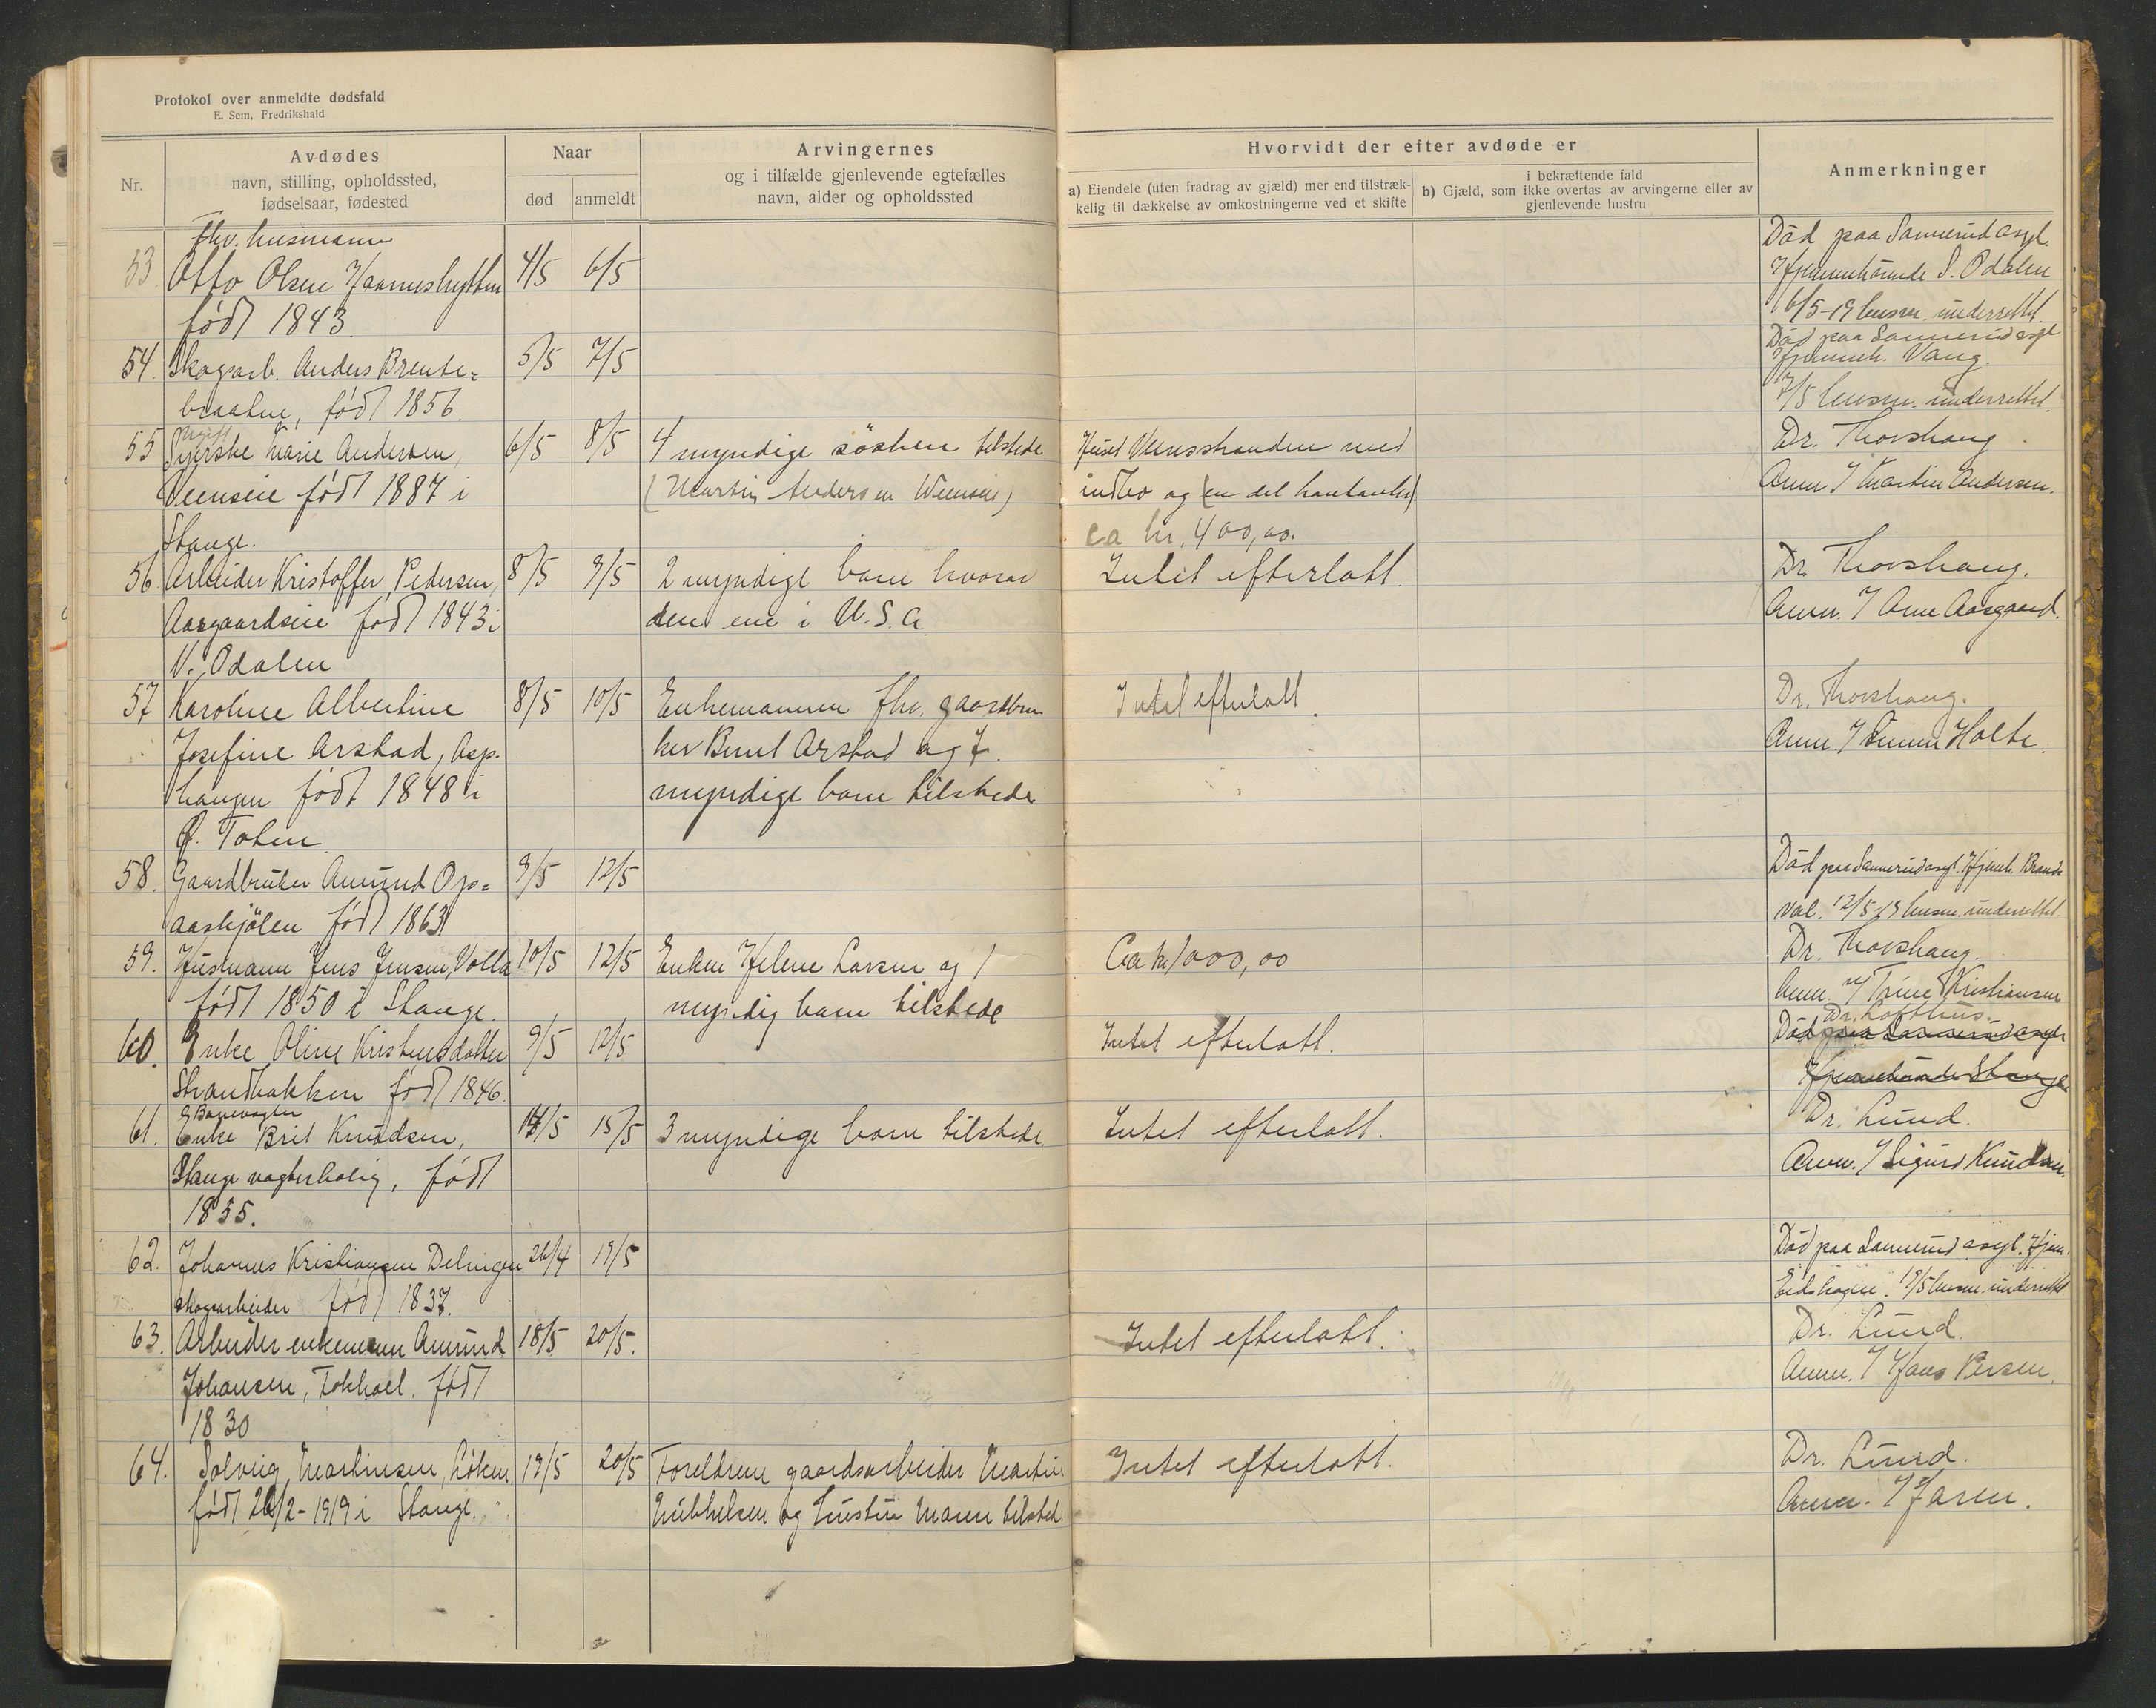 Protokol over anmeldte dødsfald
E. Sem, Fredrikshald
Nr.
Avdødes
navn, stilling, opholdssted,
fødselsaar, fødested
Naar
død
anmeldt
Arvingernes
og i tilfælde gjenlevende egtefælles
navn, alder og opholdssted
Hvorvidt der efter avdøde er
a) Eiendele (uten fradrag av gjæld) mer end tilstræk-
kelig til dækkelse av omkostningerne ved et skifte
i bekræftende fald
b) Gjæld, som ikke overtas av arvingerne eller av
gjenlevende hustru
Anmerkninger
fhv. husmann
53. Otto Olsen 4/5 6/5
født 1843.
Død paa Sannerud asyl.
Hjemmehörende S. Odalen
6/5-19 lensm. underrettet.
54. Skogarb. Anders Brente= 5/5 7/5
braaten, født 1856
Død paa Sannerud asyl
Hjemmeh. Vang.
7/5 lensm. underrettet.
55 Syerske Marie Andersen, 6/5 8/5 4 myndige søsken tilstede
født 1887 i (Martin Andersen
Stange.
Huset med
indbo og (en del kontanter)
ca kr. 400,00.
Dr. Thorshaug
Anm. / Martin Andersen.
56. Arbeider Kristoffer Pedersen, 8/5 9/5 2 myndige barn hvorav
Aasgaardseie født 1843 i den ene i U.S.A.
V. Odalen
Intet efterlatt.
Dr. Thorshaug.
Anm. / Arne Aasgaard.
57 Karoline Albertine 8/5 10/5 Enkemannen fhv. gaardbru
Josefine Arstad, Asp- ker Bernt Arstad og 7
haugen født 1848 i myndige barn tilstede
Ø. Toten
Intet efterlatt.
Dr. Thorshaug.
Anm. / Holte.
58. Gaardbruker Amund Op= 9/5 12/5
aaskjölen født 1863
Død paa Sannerud asyl. Hjemh. Brand
val. 12/5-19 lensm. underrettet.
59. Husmann Jens Jensen, Volla 10/5 12/5 Enken Helene Larsen og 1
født 1850 i Stange. myndig barn tilstede
Ca kr 1000,00
Dr. Thorshaug.
Anm. / Trine Kristiansen
60. Enke Oline Kristensdatter 9/5 12/5
Strandbakken født 1846.
Intet efterlatt.
Dr. Lofthus.
Død paa Sannerud asyl
Hjemmehörende Stange
Banevogter
61. Enke Brit Knudsen, 14/5 15/5 3 myndige barn tilstede.
Stange vogterbolig, født
1855.
Intet efterlatt.
Dr. Lund.
Anm. / Sigurd Knudsen.
62. Johannes Kristiansen 26/4 19/5
skogsarbeider født 1837.
Død paa Sannerud asyl. Hjem.
Eidskogen. 19/5 lensm. underrettet
63. Arbeider enkemann Amund 18/5 20/5.
Johansen, født
1830
Intet efterlatt.
Dr. Lund.
Anm. / Hans Persen.
64. Solveig Martinsen, Löken, 19/5 20/5 Foreldrene gaardsarbeider Martin
født 26/2-1919 i Stange. Mikkelsen og hustru Maren tilstede
Intet efterlatt.
Dr. Lund.
Anm. / Faren.